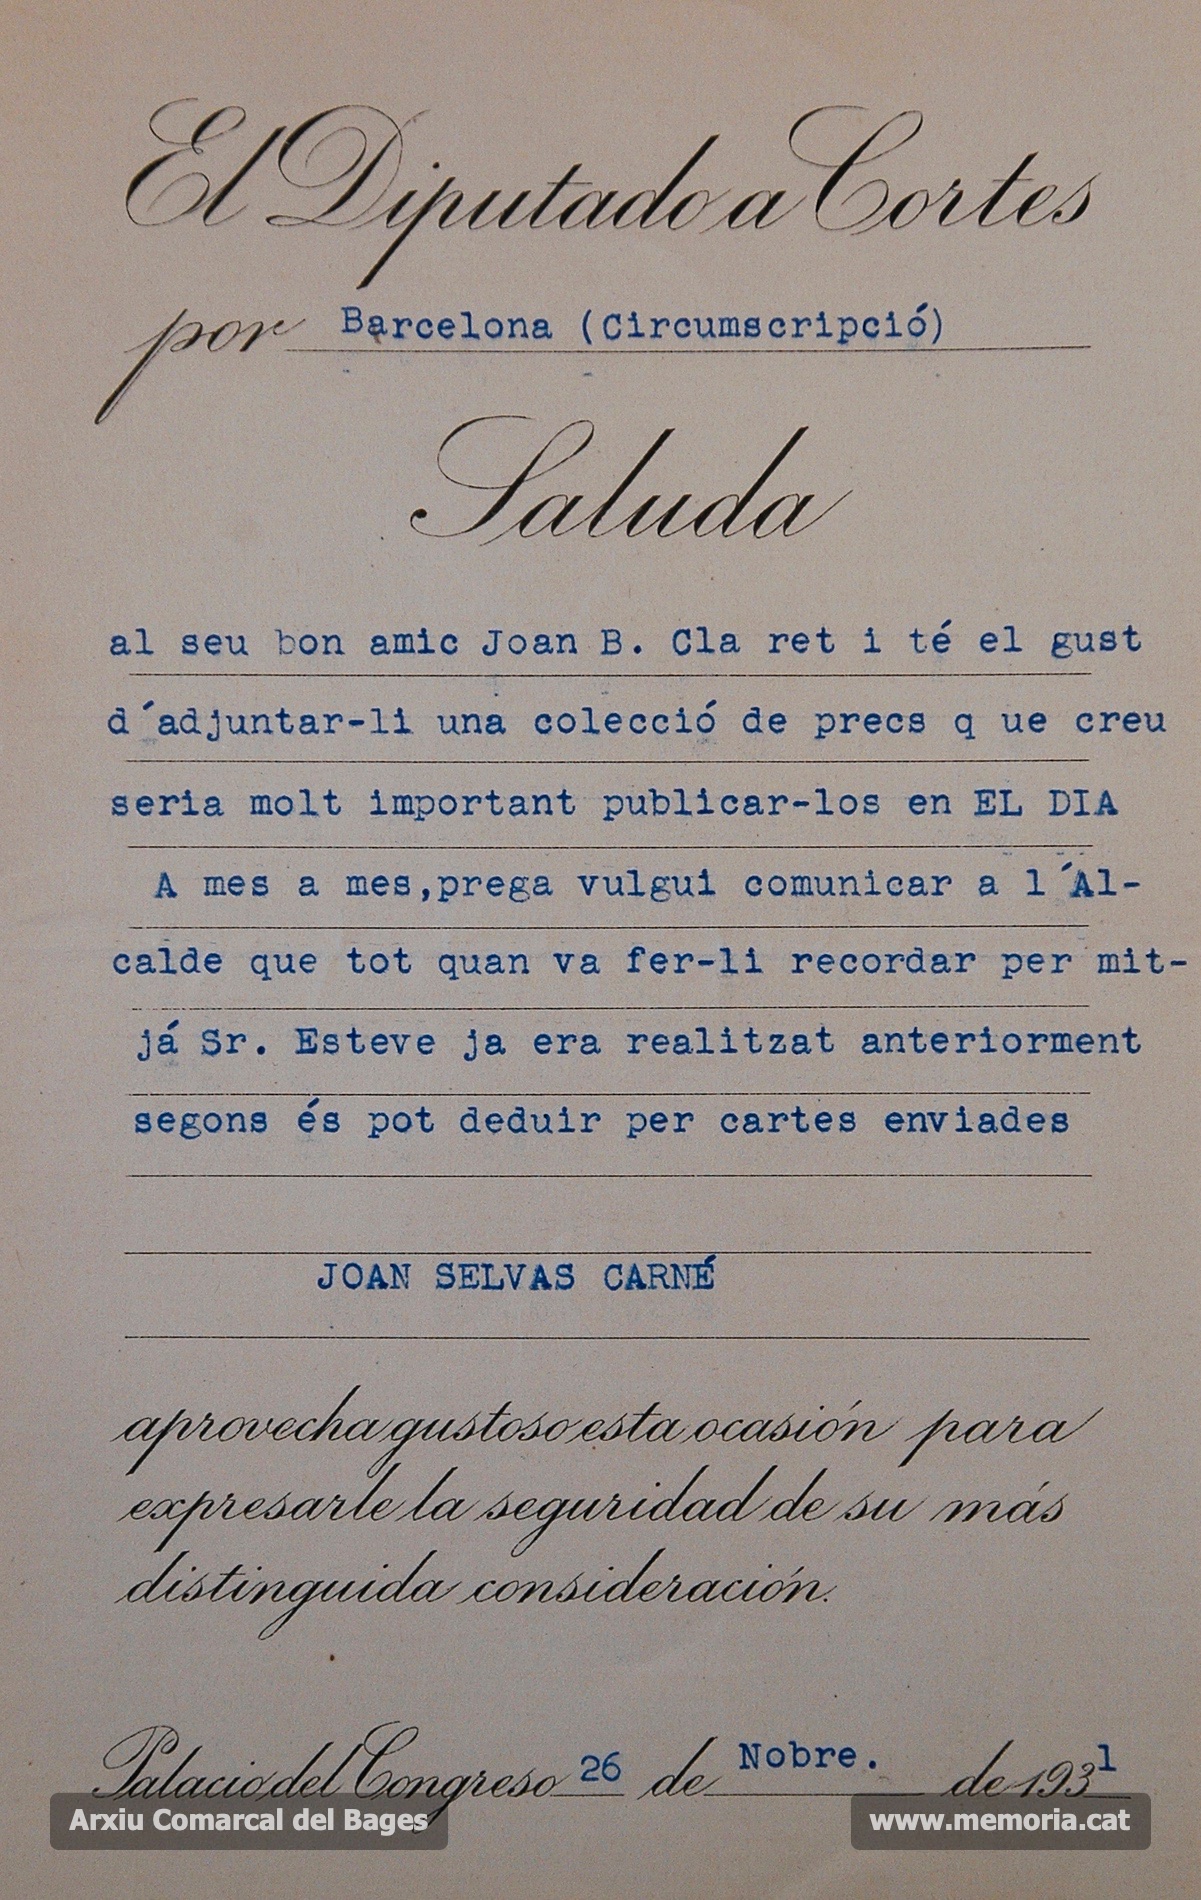 El Diputado a Cortes
por Barcelona (Circumscripció)
Saluda
al seu bon amic Joan B. Cla ret i té el gust
d´adjuntar-li una colecció de precs q ue creu
seria molt important publicar-los en EL DIA
A mes a mes,prega vulgui comunicar a l´Al-
calde que tot quan va fer-li recordar per mit-
já Sr. Esteve ja era realitzat anteriorment
segons és pot deduir per cartes enviades
JOAN SELVAS CARNÉ
aprovecha gustoso esta ocasión para
expresarle la seguridad de su más
distinguida consideración.
Palacio del Congreso 26 de Nobre. de 1931
Arxiu Comarcal del Bages
www.memoria.cat